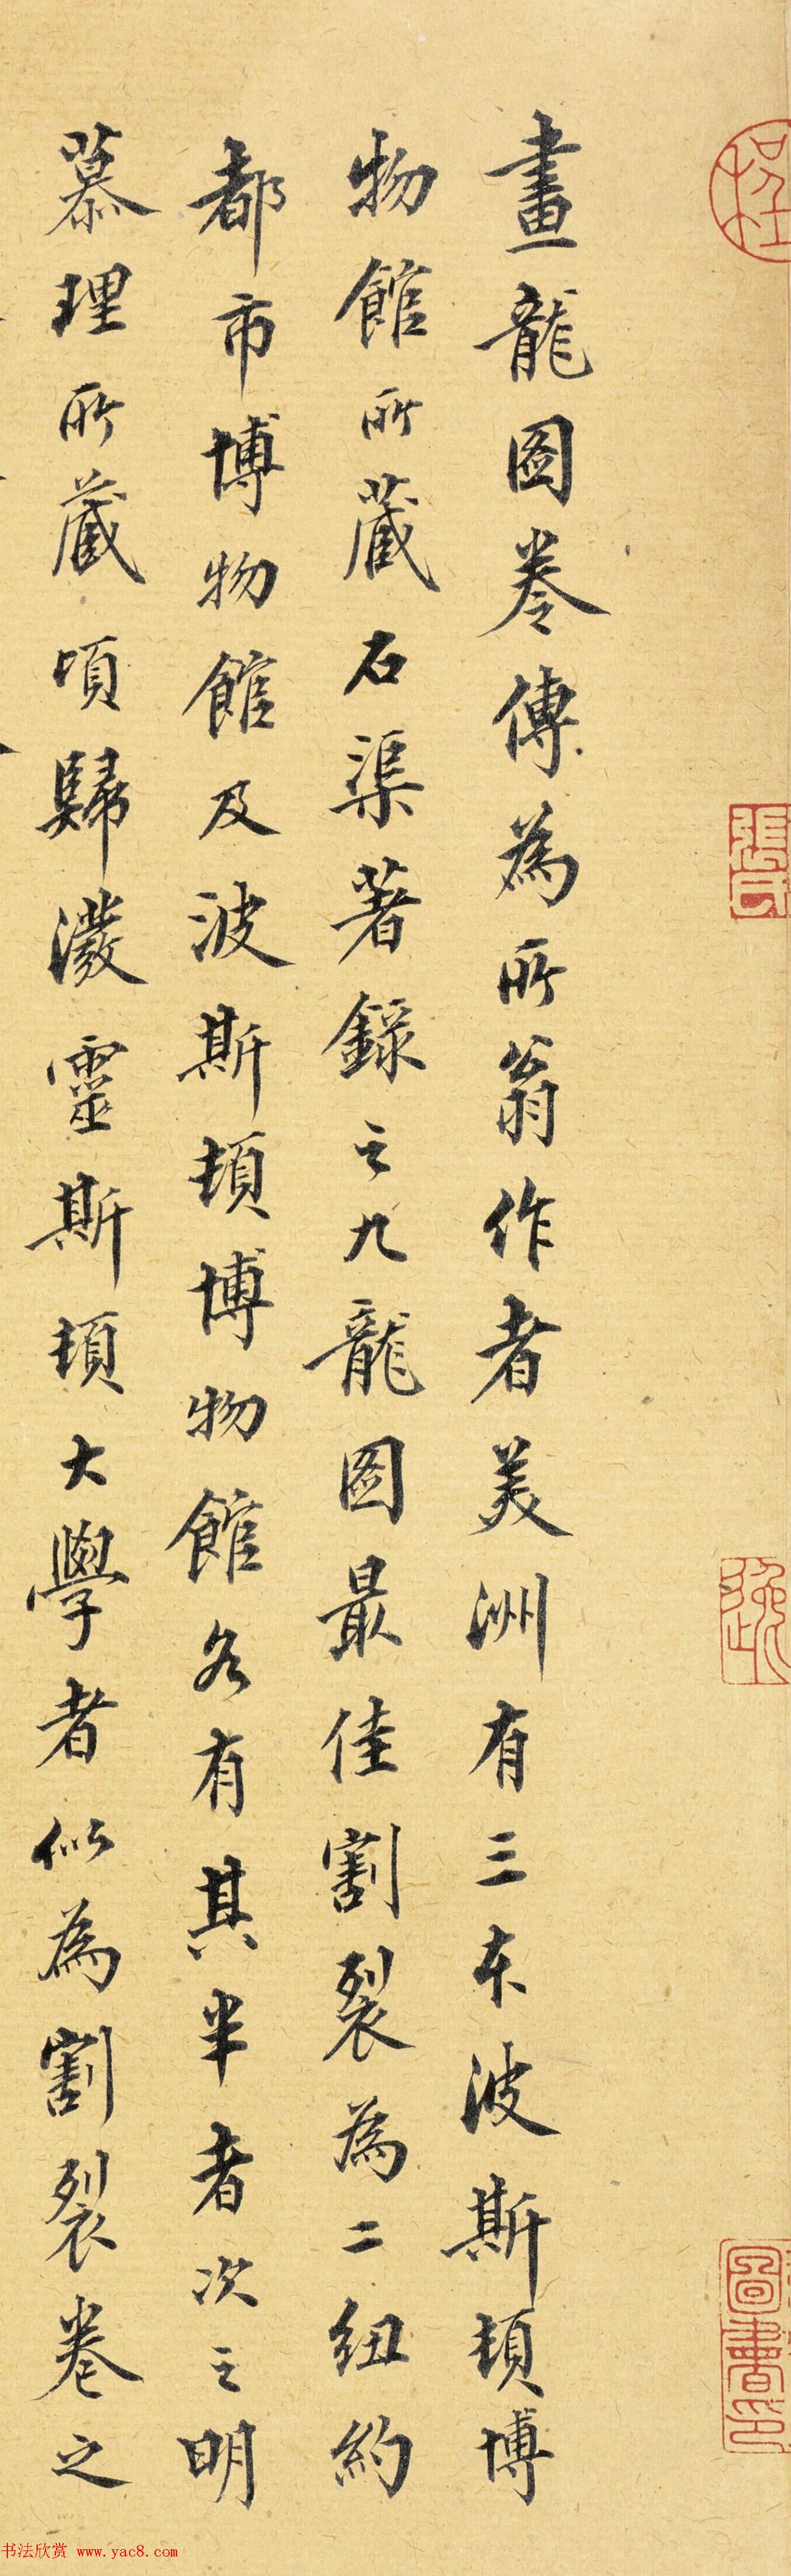 畫龍圖卷傳為所翁作者美洲有三本波斯頓博
物館所藏石渠著錄之九龍圖最佳割裂為二紐約
都市博物館及波斯頓博物館各有其半者次之明
慕理所藏頃歸潑靈斯頓大學者似為割裂卷之
圖書印
书法欣赏 www.yac8.com